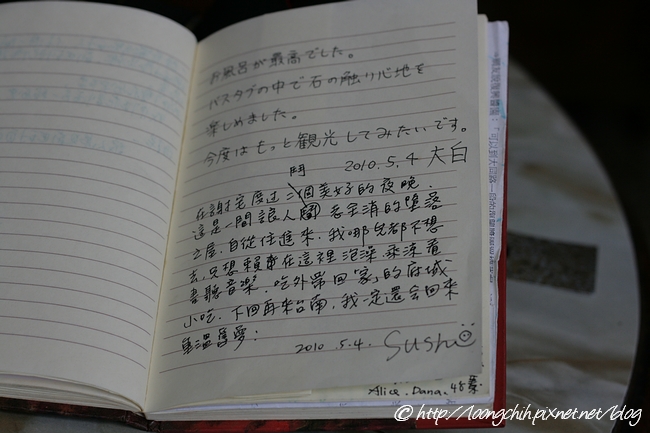 お風呂が最高でした。
バスタブの中で石の触り心地を
楽しめました。
今度はもっと観光してみたいです。
2010.5.4 大白
在謝宅度过二個美好的夜晚.
鬥
這是一間讓人鬭志全消的墮落
之屋,自從住進來,我哪兒都不想
去,只想賴在這裡泡澡.乘涼看
書聽音樂.吃外帶回"家"的府城
小吃.下回再來台南,我一定還会回來
重溫舊夢!
2010.5.4. Sushi
Alice. Dana.
© http://loongchih.pixnet.net/blog